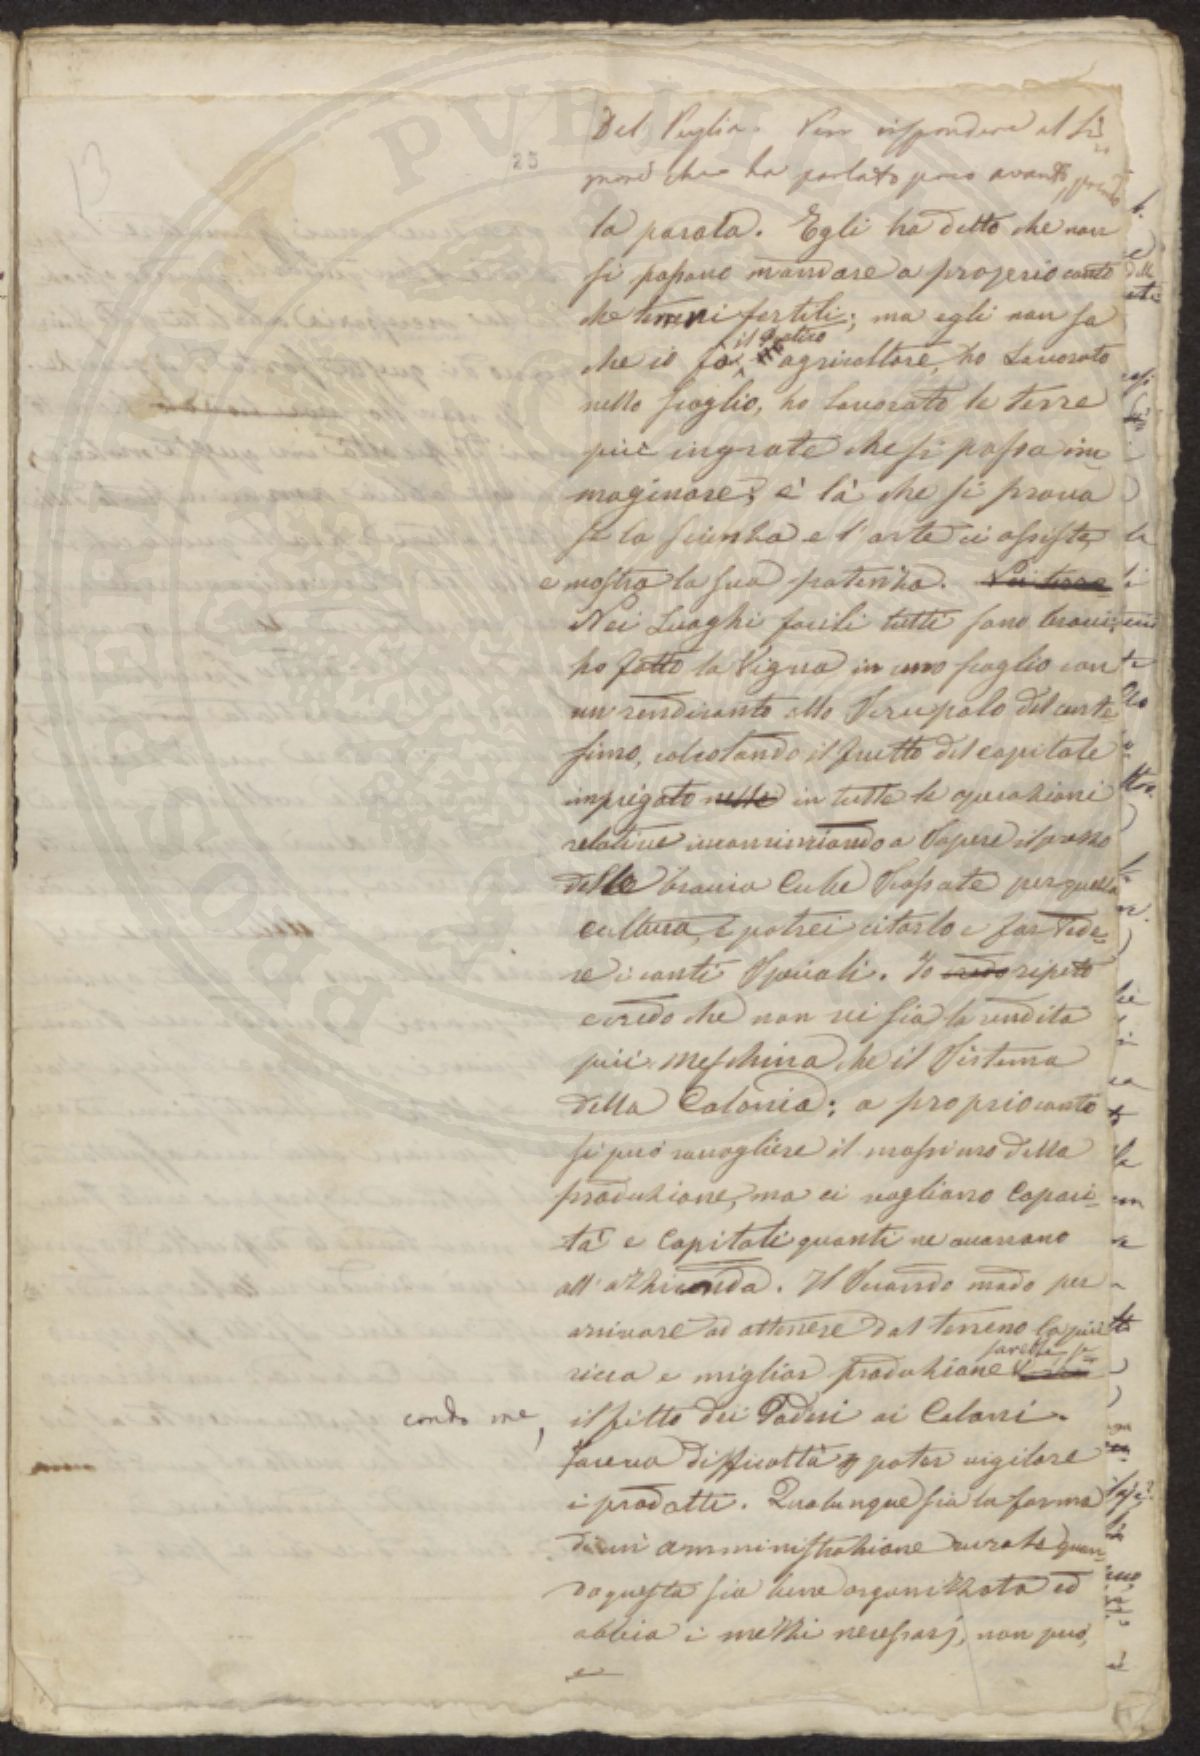 25
Del Puglia. Per rispondere al Si=
gnore che ha parlato poco avanti, prendo
la parola. Egli ha detto che non
si possono mandare a proprio conto
che terreni fertili; ma egli non sa
che io fo il pratico agricoltore, ho lavorato
nello scoglio, ho lavorato le terre
più ingrate che si possa im=
maginare; è là che si prova
se la scienza e l'arte ci assiste,
e mostra la sua potenza. Nei terre
Nei Luoghi facili tutti sono bravi;
ho fatto la Vigna in uno scoglio con
un rendiconto allo scrupolo del cente
simo, calcolando il frutto del capitale
impiegato nelle in tutte le operazioni
relative incominciando a sapere il prezzo
delle braccia Cube scassate per quella
cultura, e potrei citarlo e far vede=
re i conti speciali. Io credo ripeto
credo che non vi sia la rendita
più meschina che il sistema
della Colonia; a proprio conto
si può raccogliere il massimo della
produzione, ma ci vogliono Capaci=
tà e Capitali quanti ne occorrono
all'azhienda. Il secondo modo per
arrivare ad ottenere dal terreno la più
ricca e miglior produzione sarebbe, se
condo me,
il fitto dei Poderi ai Coloni.
Faceva difficoltà poter vigilare
i prodotti. Qualunque sia la forma
di un amministrazione rurale quan=
do questa sia bene organizzata ed
abbia i mezzi necessarj, non può,
e